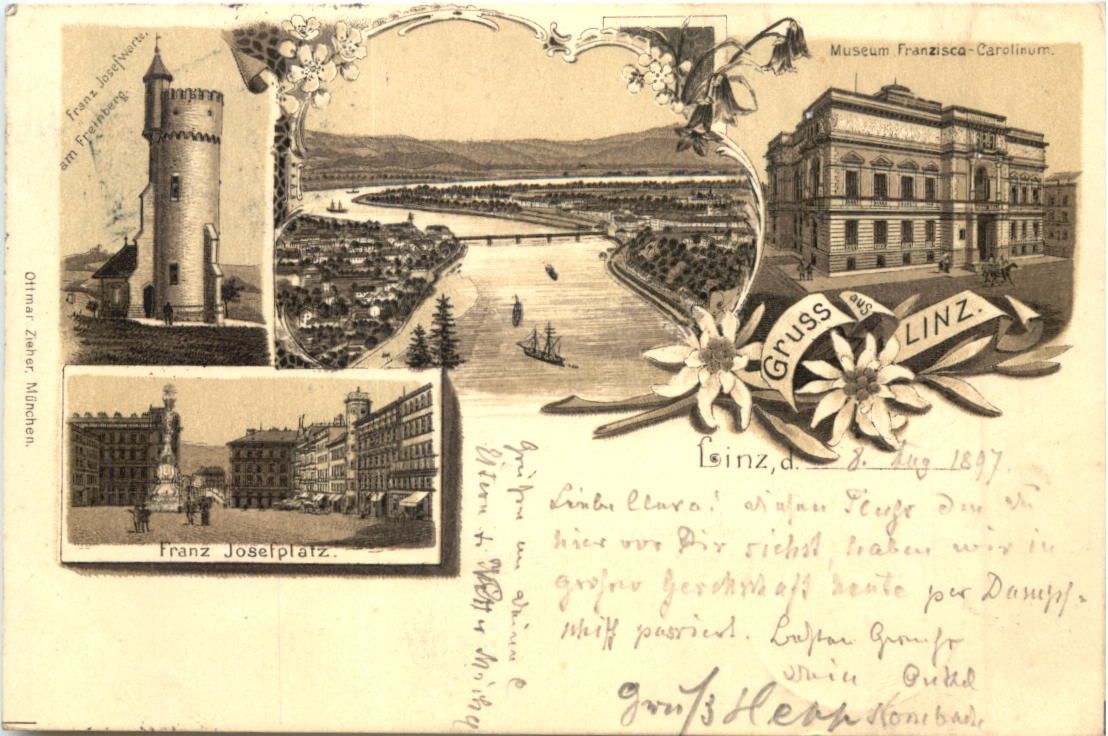 Franz Josefwarte.
am Freinberg.
Museum Franzisca-Carolinum.
Gruss aus LINZ.
Ottmar Zieher, München.
Franz Josefplatz.
Linz, d. 8. Aug 1897.
Liebe Clara! diesen Fluß den Du
hier vor Dir siehst, haben wir in
großer Gesellschaft heute per Dampf-
schiff passiert. Besten Gruß
dein Onkel
Gruß
Grüßen an deine l
Eltern u.